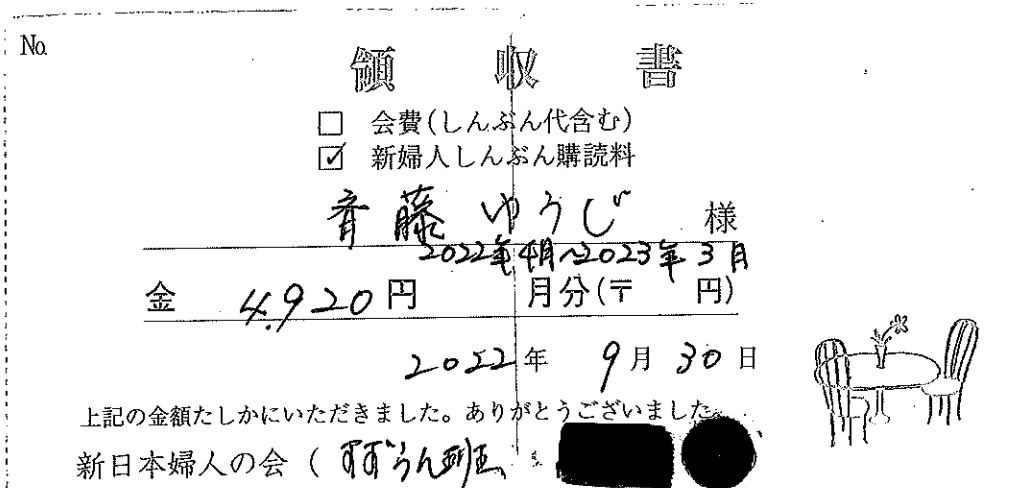 No.
領収書
□ 会費(しんぶん代含む)
☑ 新婦人しんぶん購読料
斉藤ゆうじ 様
2022年4月~2023年3月
金 4,920円 月分(〒 円)
2022年 9月 30日
上記の金額たしかにいただきました。ありがとうございました。
新日本婦人の会 ( すずらん班